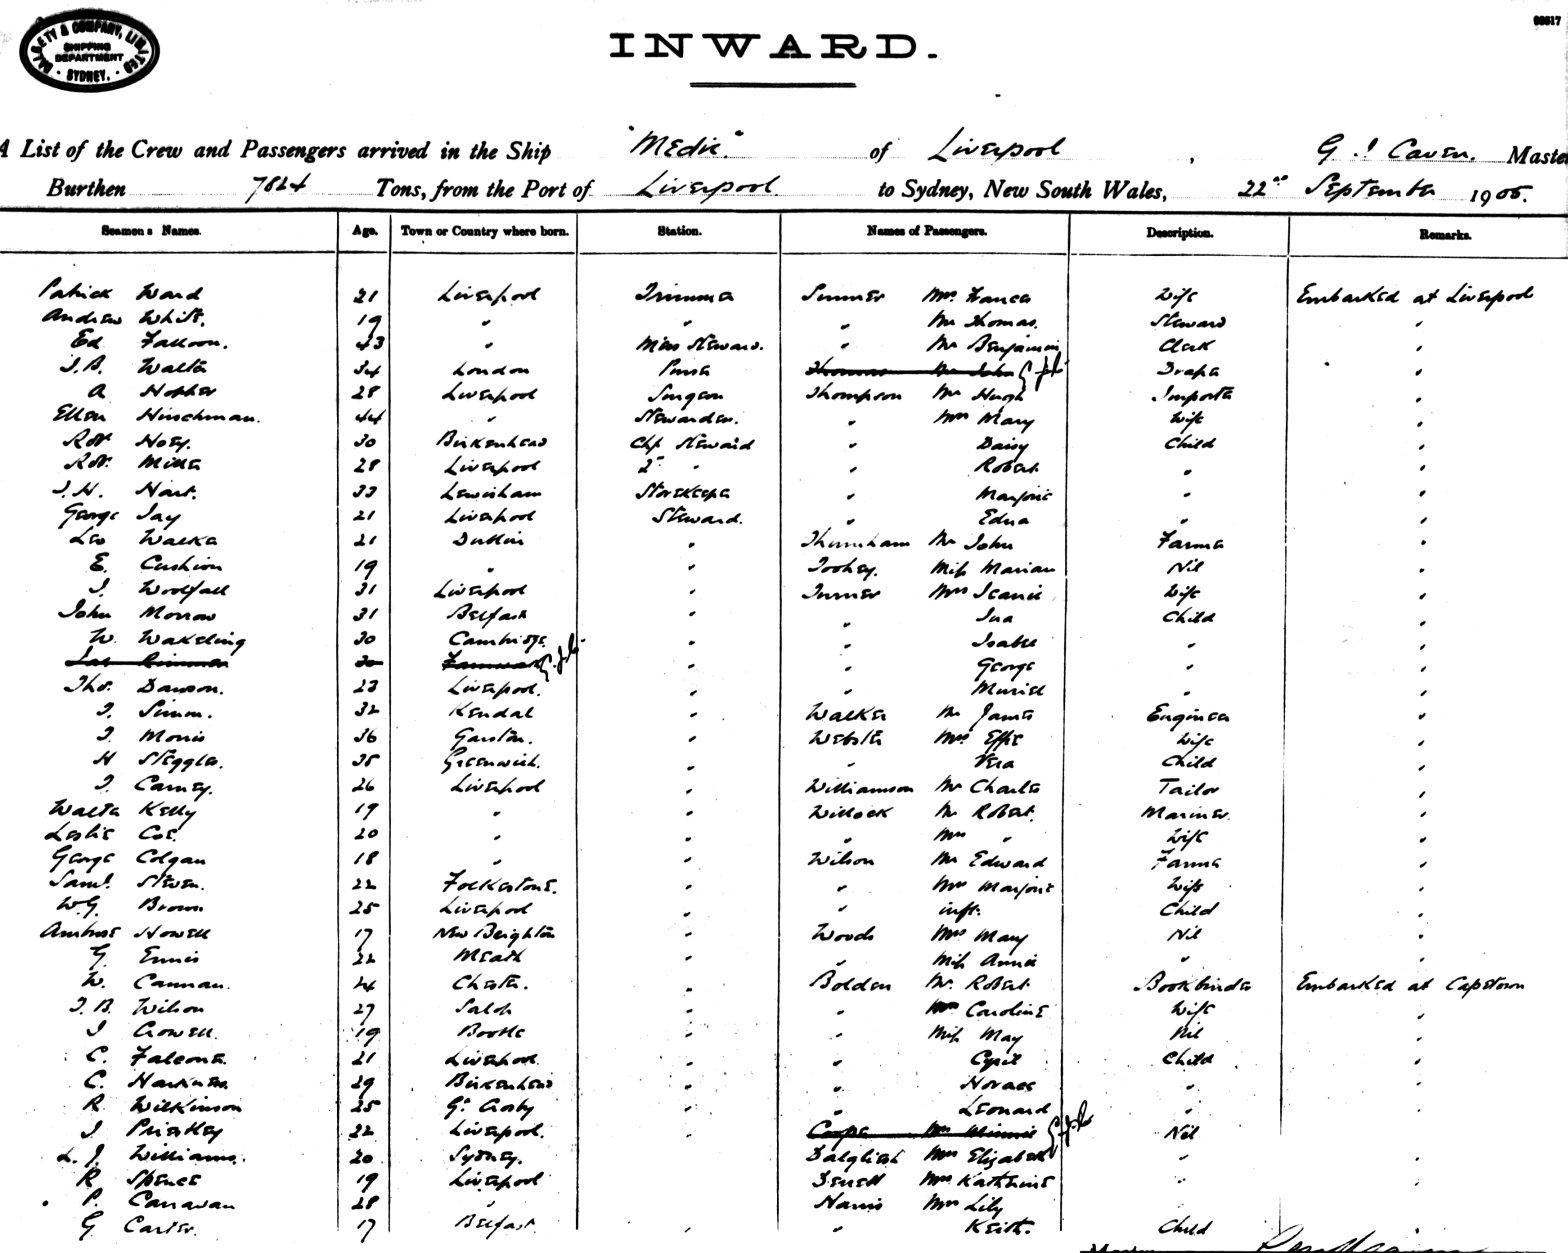 DALGETY & COMPANY, LIMITED
SHIPPING
DEPARTMENT
SYDNEY.
INWARD.
A List of the Crew and Passengers arrived in the Ship "Medic" of Liverpool, Caven, Master
Burthen 7824 Tons, from the Port of Liverpool to Sydney, New South Wales, 22nd September 1905.
Seamen's Names. Age. Town or Country where born. Station. Names of Passengers. Description. Remarks.
Patrick Ward 21 Liverpool Trimmer Mrs Wife Embarked at Liverpool
Andrew White. 19 " " " Mr Thomas. Steward "
Ed Falloon. 43 " Mess Steward. " Mr Benjamin Clerk "
Walter 34 London Purser Thomas Mr John Draper "
A Hopper 28 Liverpool Surgeon Thompson Mr Hugh Importer "
Ellen Hinchman. 44 " Stewardess. " Mrs Mary Wife "
Robt Hoey. 30 Birkenhead Chf Steward " Daisy Child "
Robt Miller 28 Liverpool 2nd " " Robert " "
J.H. Hart. 33 Lewisham Storekeeper " Marjorie " "
George Jay 21 Liverpool Steward. " Edna " "
Leo Walker 21 Dublin " Thurnham Mr John Farmer "
E. Cushion 19 " " Toohey. Miss Marian Nil "
J. Woolfall 31 Liverpool " Turner Mrs Jeanie Wife "
John Morrow 31 Belfast " " Ina Child "
W. Wakeling 30 Cambridge. " " Isabel " "
30 " " George " "
Thos. Dawson. 23 Liverpool. " " Muriel " "
Simm. 32 Kendal " Walker Mr James Engineer "
Morris 36 Garston. " Webster Mrs Effie Wife "
H Steggles. 35 Greenwich. " " Vera Child "
Carney. 26 Liverpool " Williamson Mr Charles Tailor "
Walter Kelly 19 " " Willock Mr Robert. Mariner. "
Leslie Coe. 20 " " " Mrs " Wife "
George Colgan 18 " " Wilson Mr Edward Farmer "
Saml. Steven. 22 Folkestone. " " Mrs Marjorie Wife "
W.G. Brown 25 Liverpool " " inft. Child "
Ambrose Howell 17 New Brighton " Woods Mrs Mary Nil "
G Ennis 22 Meath " " Miss Annie " "
W. Cannan. 24 Chester. " Bolden Mr. Robert Bookbinder Embarked at Capetown
J.B. Wilson 27 " " Mrs Caroline Wife "
J Crowell. 19 Bootle " " Miss May Nil "
C. Falconer. 21 Liverpool. " " Cyril Child "
C. Harkness. 29 Birkenhead " " Horace " "
R Wilkinson 25 Gt Crosby " " Leonard "
J Priestley 22 Liverpool. " Cooper Mrs Minnie Nil
L.J. Williams. 20 Sydney. Dalgliesh Mrs Elizabeth " "
R Spence 19 Liverpool Mrs Katherine " "
P. Canavan 28 " Harris Mrs Lily "
G Carter. 17 Belfast. " " Keith. Child "